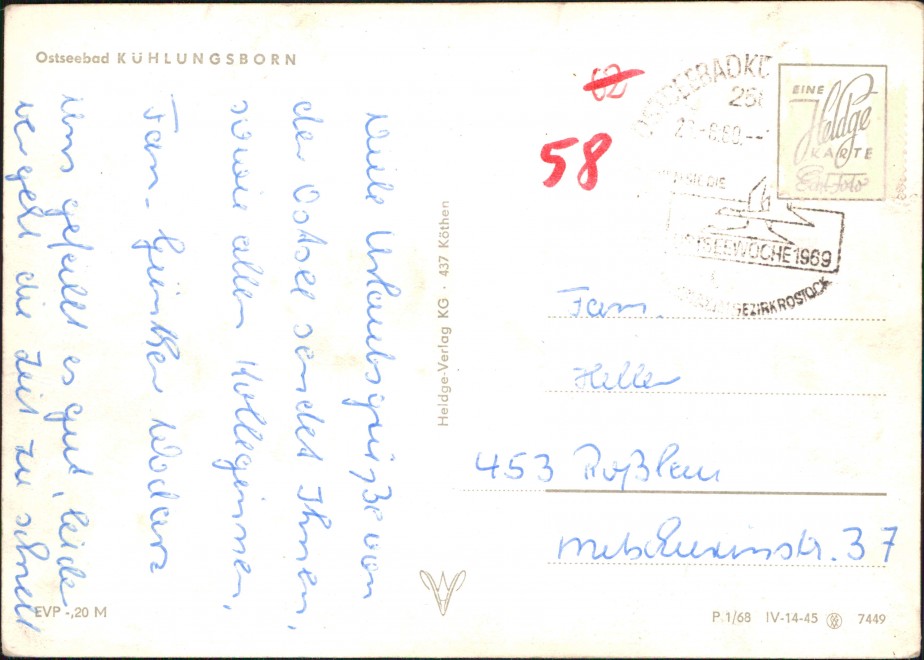 Ostseebad KÜHLUNGSBORN
Viele Urlaubsgrüße von
der Ostsee sendet Ihnen,
sowie allen Kolleginnen,
Fam. Günther Wodarz
Uns gefällt es gut, leider
vergeht die Zeit zu schnell
EVP -,20 M
Heldge-Verlag KG · 437 Köthen
62
58
OSTSEEBADKÜ
25
2 -8.69.--
SIE DIE
OSTSEEWOCHE 1969
BEZIRK ROSTOCK
EINE
Heldge
KARTE
Echt Foto
Fam.
Heller
453 Roßlau
Mitschurinstr. 37
P 1/68 IV-14-45 7449